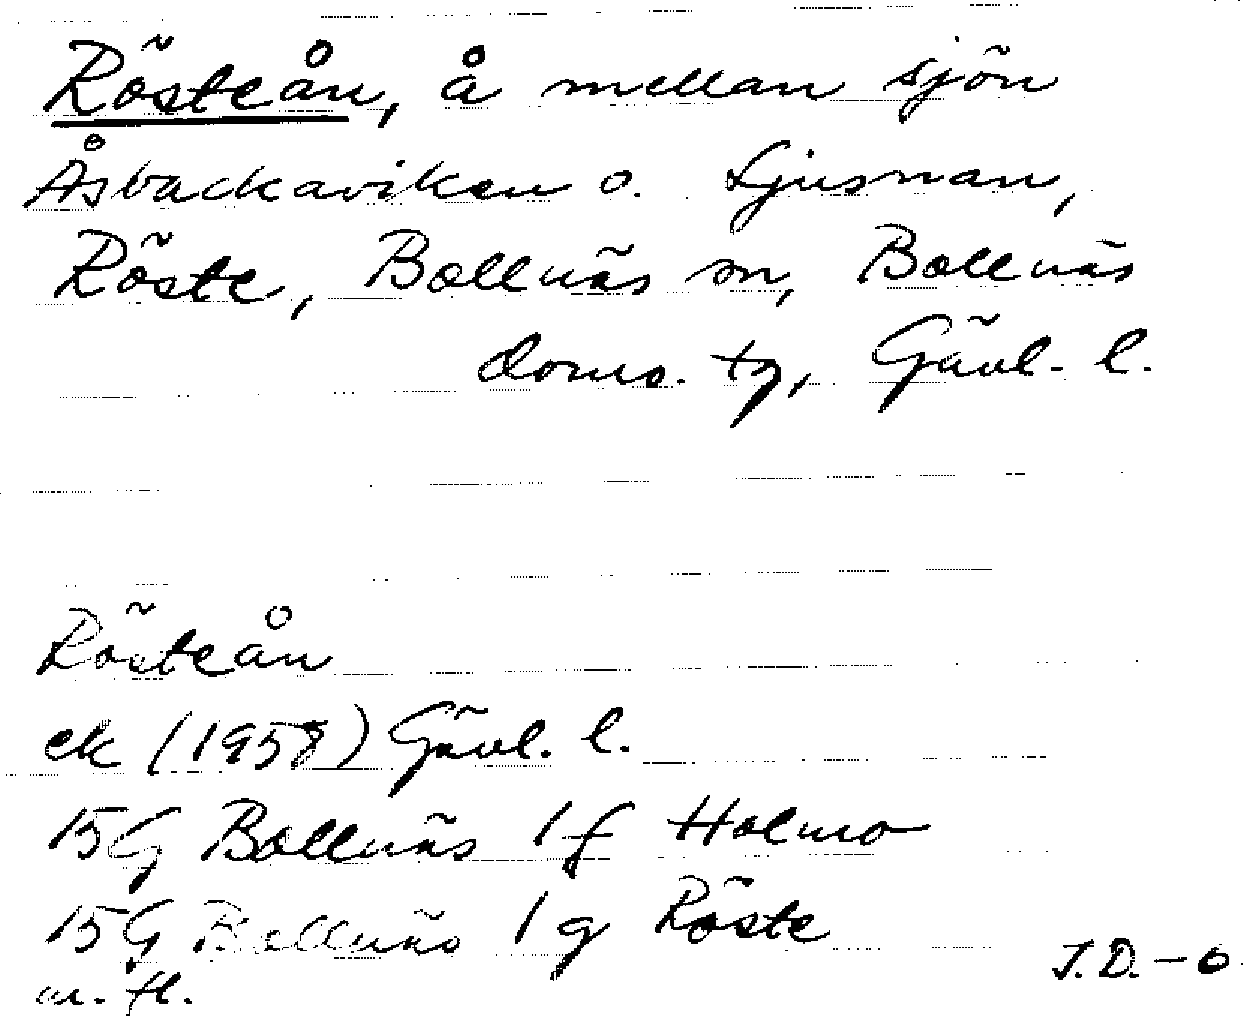 Rösteån, å mellan sjön
Åsbackaviken o. Ljusnan,
Röste, Bollnäs sn, Bollnäs
doms. tg, Gävl. l.
Rösteån
ek (1958) Gävl. l.
15G Bollnäs 1f Holmo
15G Bollnäs 1g Röste
m. fl.
J.D. - 0